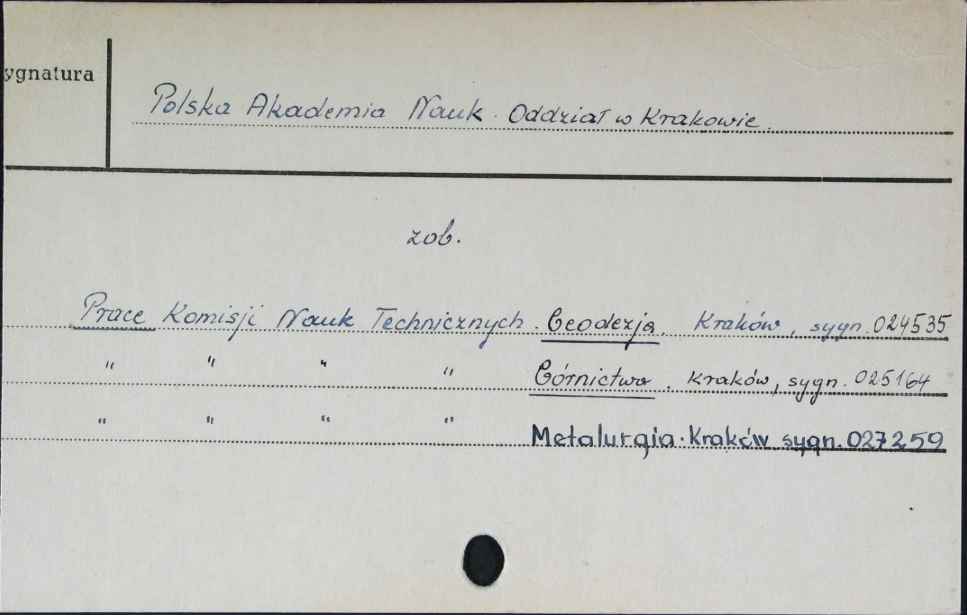 ygnatura
Polska Akademia Nauk. Oddział w Krakowie.
zob.
Prace Komisji Nauk Technicznych. Geodezja. Kraków, sygn. 024535
" " " " Górnictwo. Kraków, sygn. 025164
" " " " Metalurgia. Kraków sygn. 027259